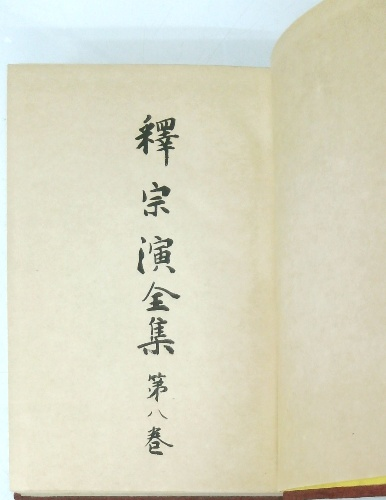 釋宗演全集第八巻